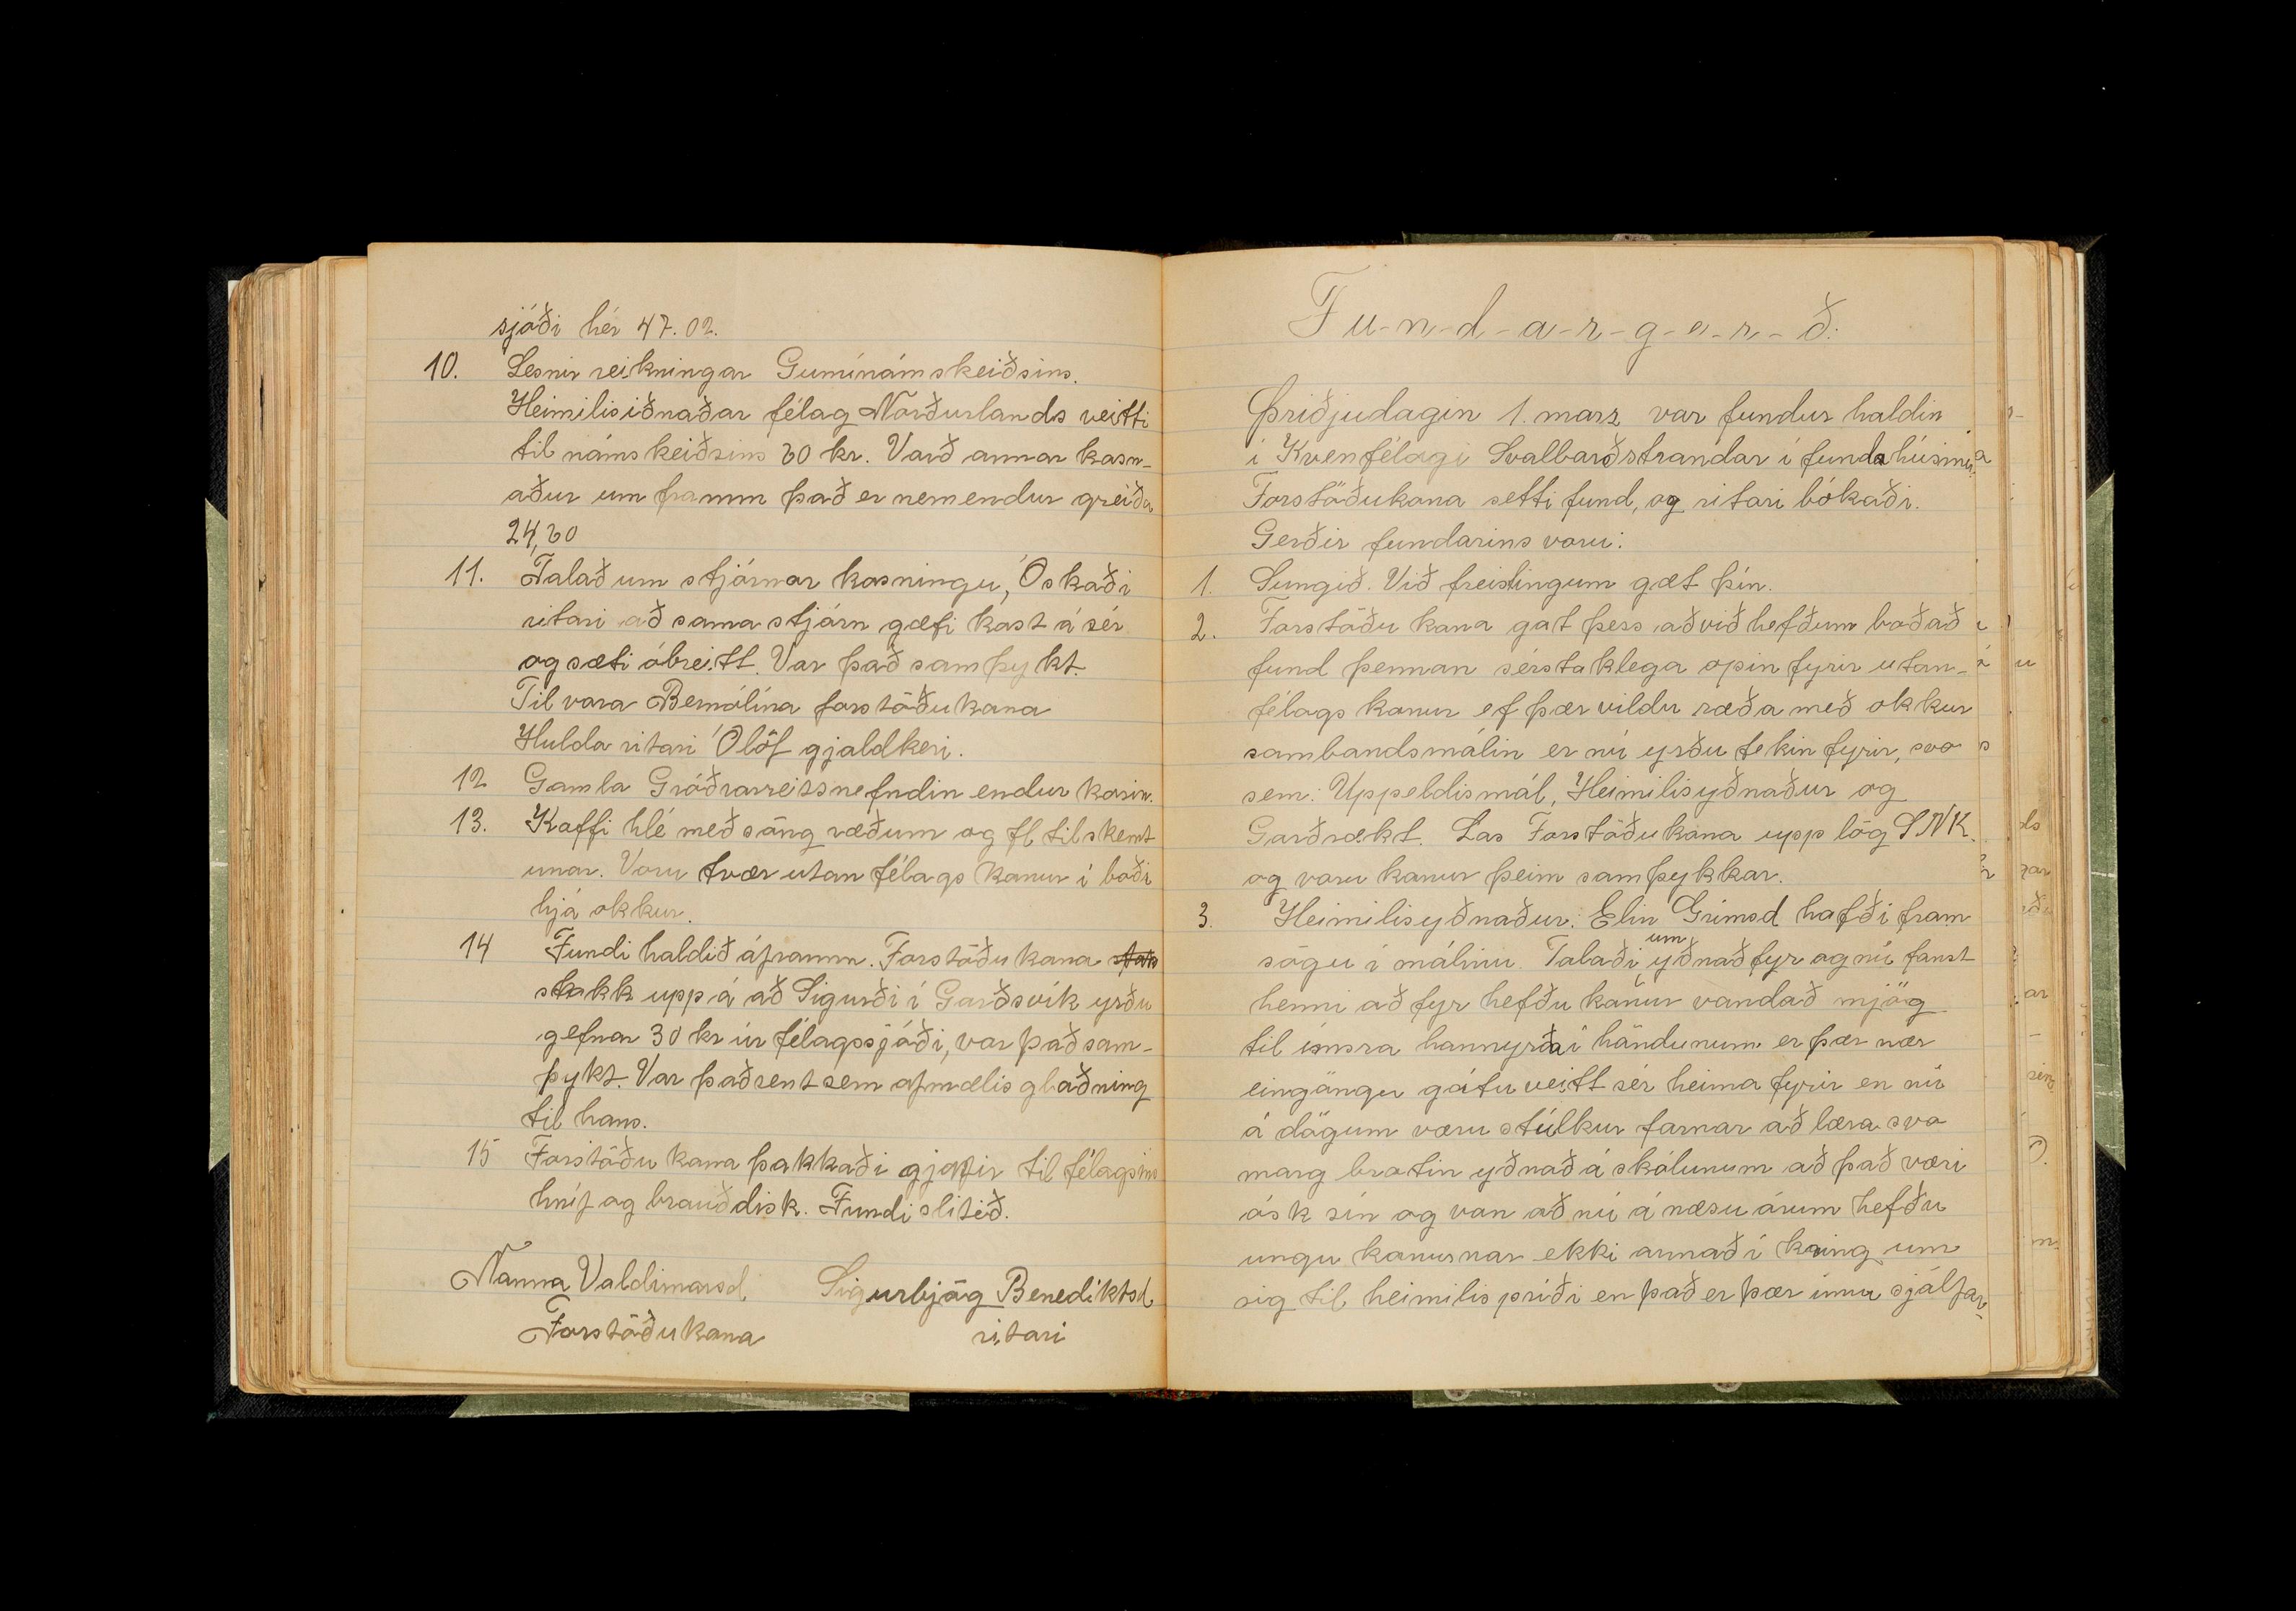 sjóði hér 47.02.
10. Lesnir reikningar Gumínámskeiðsins.
Heimilisiðnaðar félag Norðurlands veitti
til námskeiðsins 30 kr. Varð annar kosn-
aður um framm það er nemendur greiða
24,30
11. Talað um stjórnar kosningu, Óskaði
ritari að sama stjórn gæfi kost á sér
og sæti óbreitt. Var það samþykt.
Til vara Bernólína forstöðukona
Hulda ritari Ólöf gjaldkeri.
12 Gamla Gróðrarreitsnefndin endur kosin.
13. Kaffi hlé með söng ræðum og fl til skemt
unar. Voru tvær utan félags konur í boði
hjá okkur.
14 Fundi haldið áframm. Forstöðu kona
stakk uppá að Sigurði í Garðsvík yrðu
gefnar 30 kr úr félagssjóði, var það sam-
þykt. Var það sent sem afmælis glaðning
til hans.
15 Forstöðu kona þakkaði gjafir til félagsins
hníf og brauðdisk. Fundi slitið.
Nanna Valdimarsd Sigurbjög Benediktsd
Forstöðukona ritari
F-u-n-d-a-r-g-e-r-ð:
Þriðjudagin 1. marz var fundur haldin
í Kvenfélagi Svalbarðstrandar í fundahúsinu.
Forstöðukona setti fund, og ritari bókaði.
Gerðir fundarins voru:
1. Sungið. Við freistingum gæt þín.
2. Forstöðu kona gat þess að við hefðum boðað
fund þennan sérstaklega opin fyrir utan-
félags konur ef þær vildu ræða með okkur
sambandsmálin er nú yrðu tekin fyrir, svo
sem: Uppeldismál, Heimilisyðnaður og
Garðrækt. Las Forstöðukona upp lög SNK.
og voru konur þeim samþykkar.
3. Heimilisyðnaður: Elin Grímsd hafði fram
sögu í málinu. Talaði um yðnað fyr og nú fanst
henni að fyr hefðu konur vandað mjög
til ímsra hannyrða í höndunum er þær nær
eingöngu gátu veitt sér heima fyrir en nú
á dögum væru stúlkur farnar að læra svo
marg brotin yðnað á skólunum að það væri
ósk sín og von að nú á næsu árum hefðu
ungu konurnar ekki annað í kring um
sig til heimilispríði en það er þær innu sjálfar-